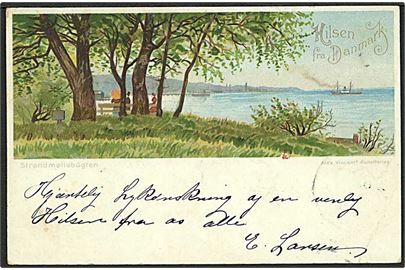 Hilsen
fra Danmark
Strandmøllebugten
Alex. Vincent Kunstforlag
Hjærtelig Lykønskning og en venlig
Hilsen fra os alle
E. Larsen